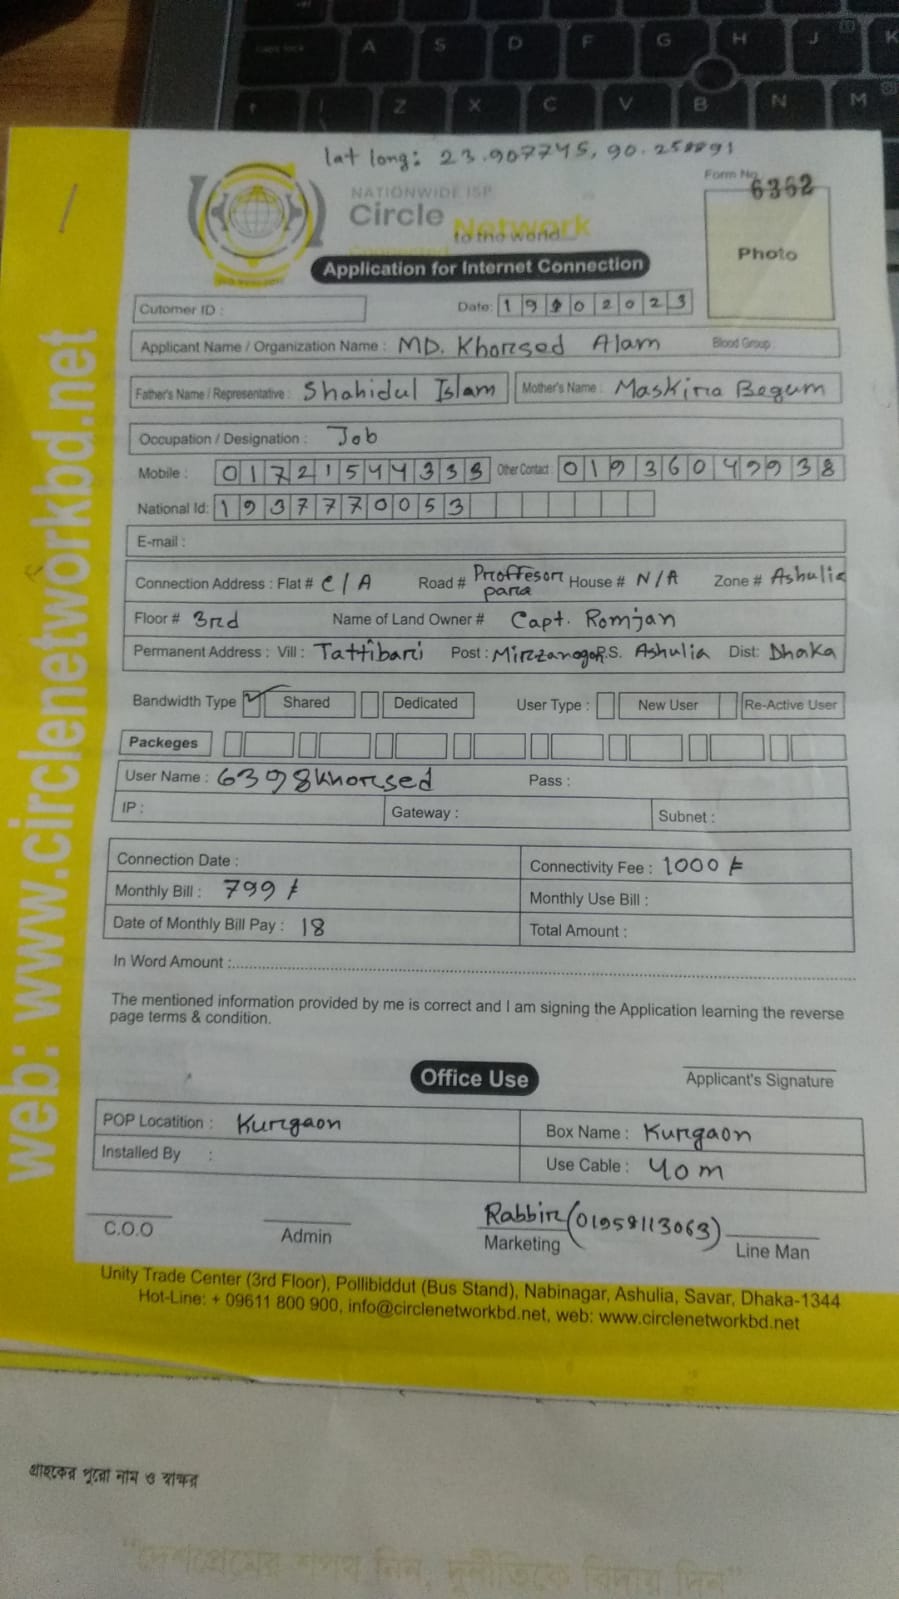 lat long: 23.907745, 90.258891
NATIONWIDE ISP
Form No. 6362
Circle Network
Connected to the world
Photo
Application for Internet Connection
Cutomer ID :
Date: 19102023
Applicant Name / Organization Name : MD. Khorsed Alam Blood Group :
Father's Name / Representative : Shahidul Islam Mother's Name : Maskina Begum
Occupation / Designation : Job
Mobile : 01721544333 Other Contact : 01936049938
National Id: 1937770053
E-mail :
Connection Address : Flat # C/A Road # Proffesor para House # N/A Zone # Ashulia
Floor # 3rd Name of Land Owner # Capt. Romjan
Permanent Address : Vill : Tattibari Post : Mirzanogor P.S. Ashulia Dist: Dhaka
Bandwidth Type ✓ Shared Dedicated User Type : New User Re-Active User
Packeges
User Name : 6398khorsed Pass :
IP : Gateway : Subnet :
Connection Date : Connectivity Fee : 1000 ৳
Monthly Bill : 799 ৳ Monthly Use Bill :
Date of Monthly Bill Pay : 18 Total Amount :
In Word Amount :
The mentioned information provided by me is correct and I am signing the Application learning the reverse
page terms & condition.
Office Use
Applicant's Signature
POP Locatition : Kurgaon Box Name : Kurgaon
Installed By : Use Cable : 40 m
Rabbir (01958113063)
C.O.O Admin Marketing Line Man
Unity Trade Center (3rd Floor), Pollibiddut (Bus Stand), Nabinagar, Ashulia, Savar, Dhaka-1344
Hot-Line: + 09611 800 900, info@circlenetworkbd.net, web: www.circlenetworkbd.net
web: www.circlenetworkbd.net
গ্রাহকের পুরো নাম ও স্বাক্ষর
"দেশপ্রেমের শপথ নিন, দুর্নীতিকে বিদায় দিন"